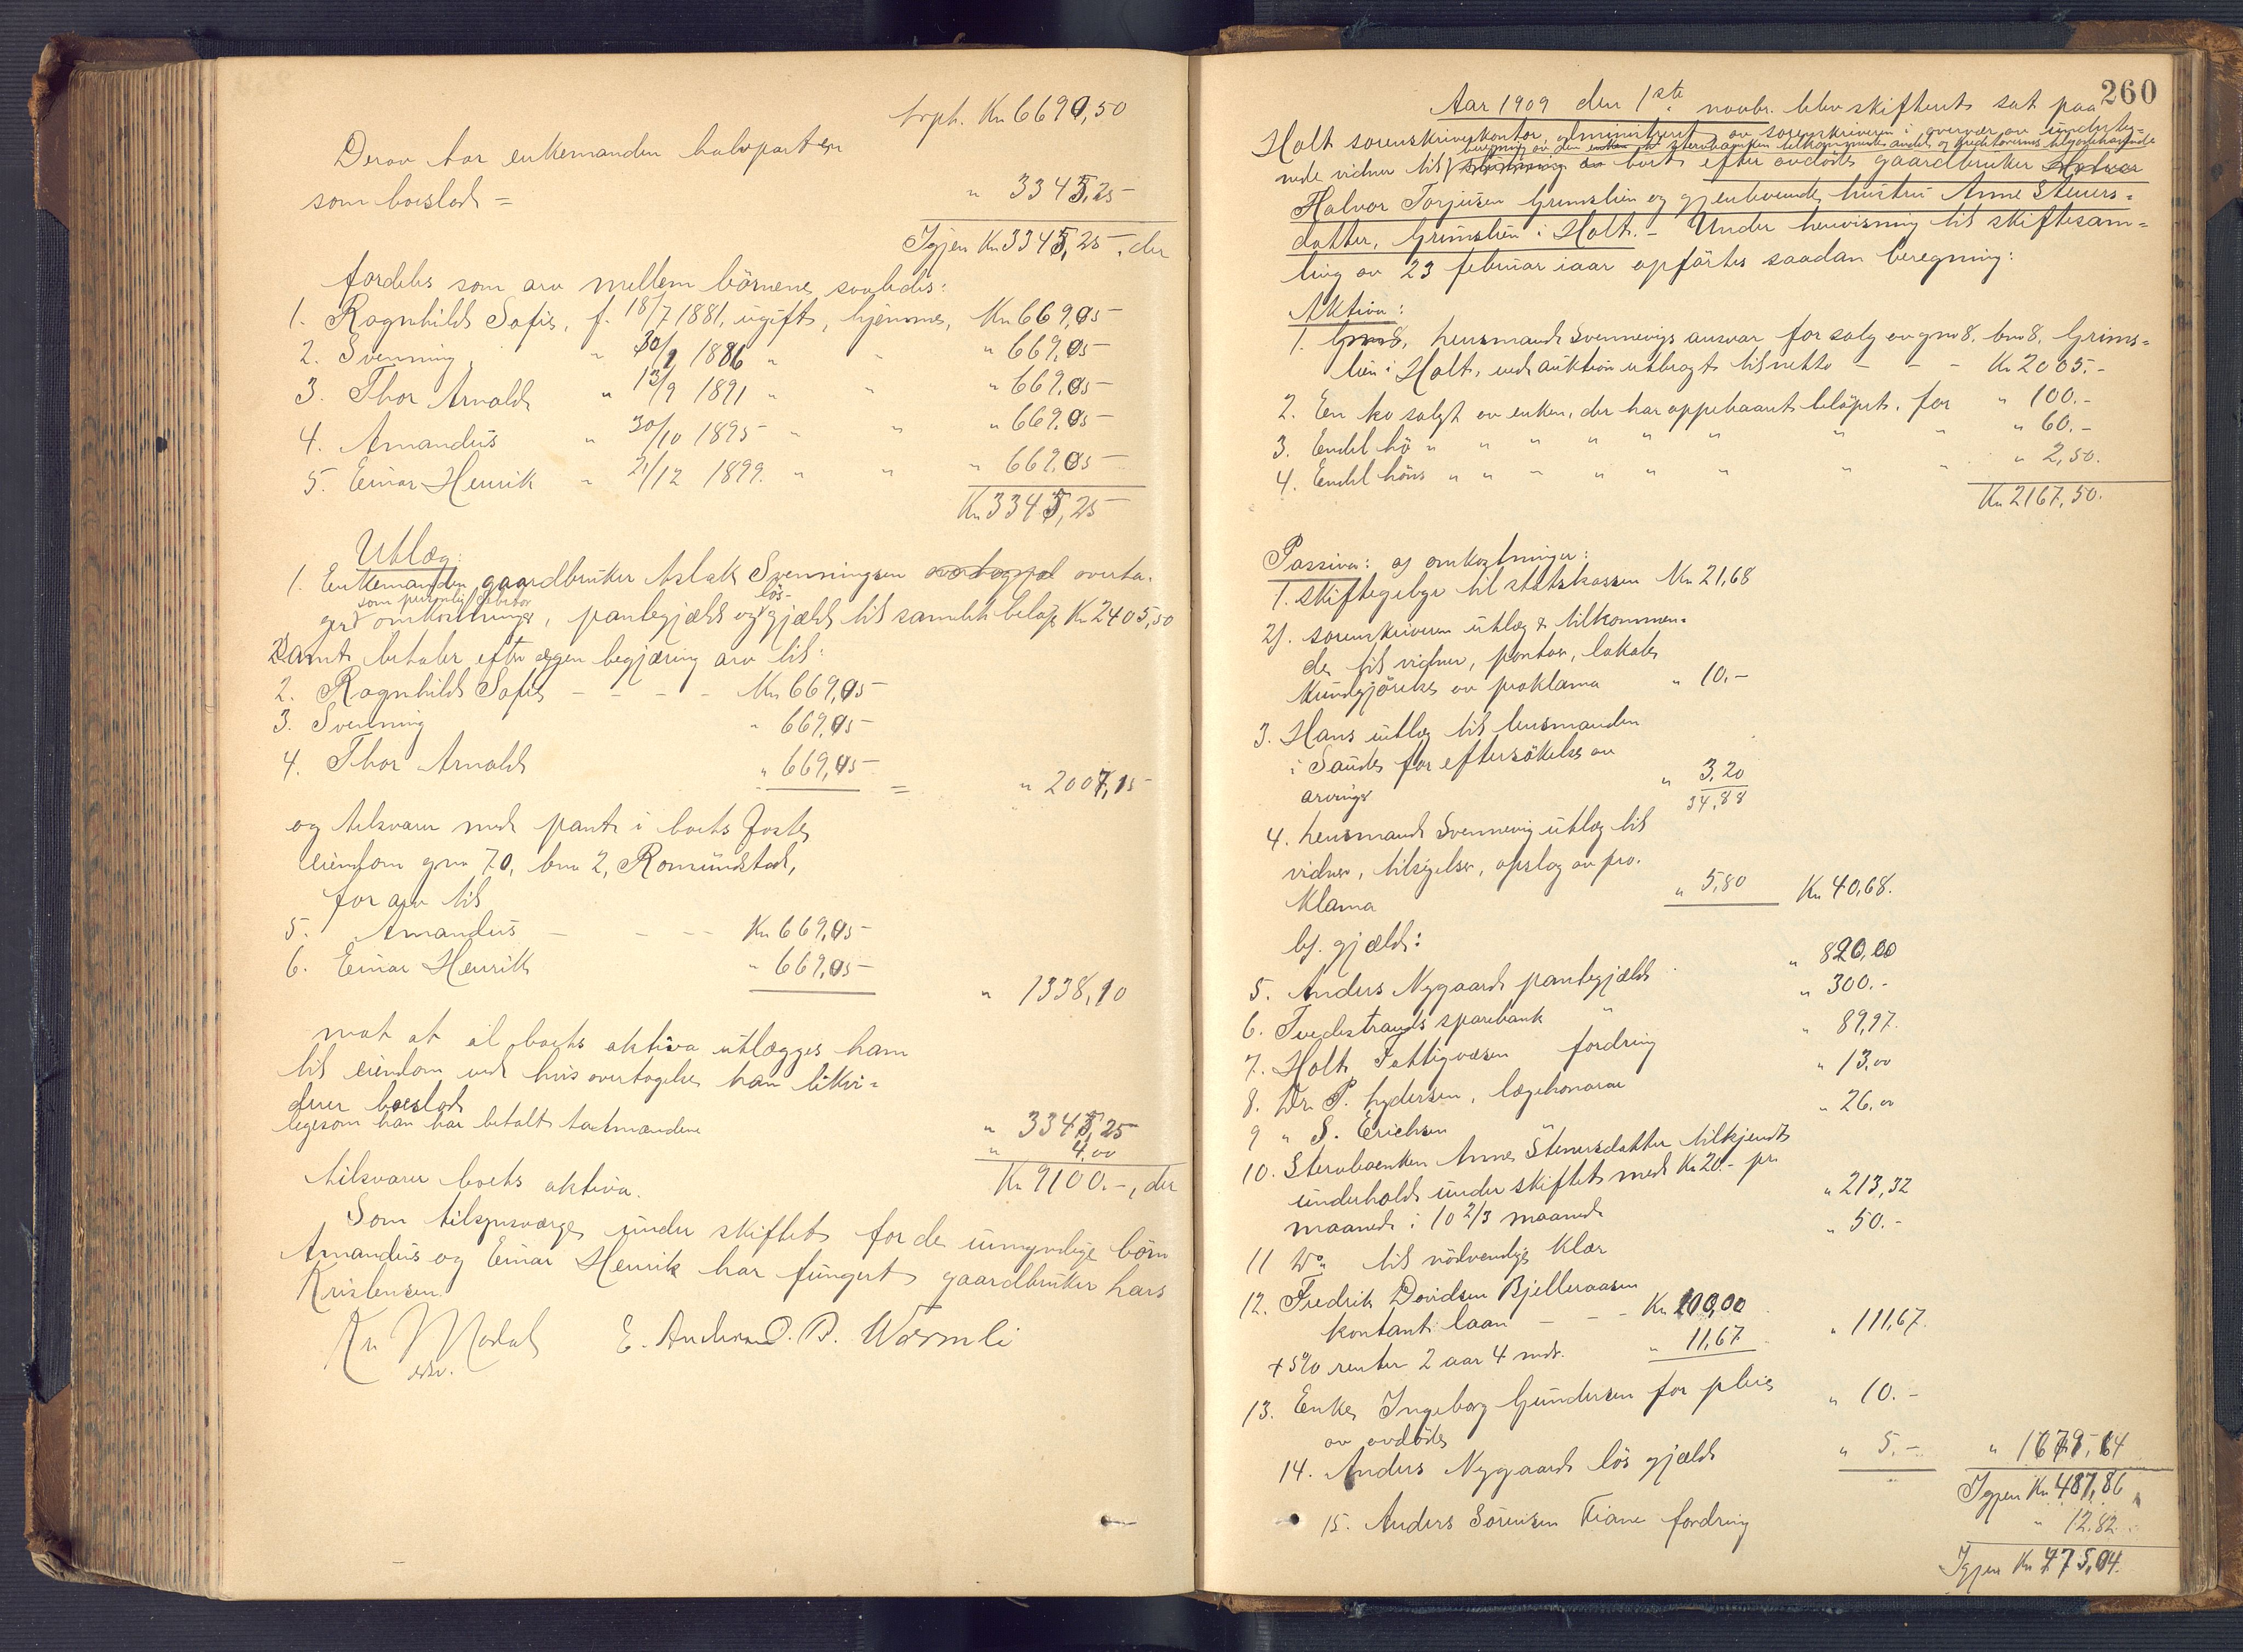 Trpt. Kr 6690,50
Derav tar enkemanden halvparten
som boeslod = " 3345,25
Igjen Kr 3345,25, der
fordeles som arv mellem börnene saaledes:
1. Ragnhild Sofie, f. 18/7 1881, ugift, hjemme, Kr 669,05
2. Svenning, " 30/9 1886 " " " 669,05
3. Thor Arnold " 13/9 1891 " " " 669,05
4. Amandus " 30/10 1895 " " " 669,05
5. Einar Henrik " 21/12 1899. " " " 669,05
Kr 3345,25
Utlæg:
1. Enkemanden, gaardbruker Aslak Svenningsen overta-
som personlig debitor lös-
ger omkostninger, pantegjæld og gjæld til samlet beløp Kr 2405,50
samt betaler efter egen begjæring arv til:
2. Ragnhild Sofie - - - - Kr 669,05
3. Svenning " 669,05
4. Thor Arnold " 669,05 = " 2007,15
og tilsvarer med pant i boets faste
eiendom gno 70, bno 2, Romundstad,
for arv til
5. Amandus - - - - Kr 669,05
6. Einar Henrik " 669,05
" 1338,10
mot at al boets aktiva utlægges ham
til eiendom ved hvis overtagelse han likvi-
derer boeslod " 3345,25
likesom han har betalt takstmændene " 4,00
tilsvarer boets aktiva. Kr 9100.-, der
Som tilsynsværge under skiftet for de umyndige börn
Amandus og Einar Henrik har fungert gaardbruker Lars
Kristensen.
Kr Modal E. Andersen O. P. Wormli
edsv.
260
Aar 1909 den 1ste novbr. blev skifteret sat paa
Holt sorenskriverkontor, administreret av sorenskriveren i overvær av underteg-
beregning av den enken i sterboenken tilkommende andel og kreditorernes tilgodehavende
nede vidner til slutning av boet efter avdöde gaardbruker Halvor
Halvor Torjusen Grimslien og gjenlevende hustru Anne Steners-
datter, Grimslien i Holt. - Under henvisning til skiftesam-
ling av 23 februar iaar opförtes saadan beregning:
Aktiva:
1. Gno 8, lensmand Svennevigs ansvar for salg av gno 8, bno 8, Grims-
lien i Holt, ved auktion utbragt til netto - - - Kr 2005.-
2. En ko solgt av enken, der har oppebaaret beløpet, for " 100.-
3. Endel hö " " " " " " " " " 60.-
4. Endel höns " " " " " " " " " 2,50.
Kr 2167,50.
Passiva: a) omkostninger:
1. skiftegebyr til statskassen Kr 21,68
2). sorenskriveren utlæg & tilkommen-
de til vidner, portoer, lokale,
kundgjörelse av proklama " 10.-
3. Hans utlæg til lensmanden
i Sande for eftersökelse av
arvinger " 3,20
34,88
4. Lensmand Svennevig utlæg til
vidner, tilsigelser, opslag av pro-
klama " 5,80 Kr 40,68.
b). gjæld:
5. Anders Nygaard pantegjæld " 820,00
6. Tvedestrands sparebank " " 300.-
7. Holt Fattigvæsen fordring " 89,97.
8. Dr. P. Lydersen, lægehonorar " 13,00
9 " S. Erichsen " 26,00
10. Sterboenken Anne Stenersdatter tilkjendt
underhold under skiftet med Kr 20.- pr.
maaned i 10 2/3 maaned " 213,32
11 Do til nödvendige klær " 50.-
12. Fredrik Davidsen Bjelleraasen
kontant laan - - - Kr 100,00
+ 5% renter 2 aar 4 mdr. " 11,67 " 111,67.
13. Enke Ingeborg Gundersen for pleie
av avdöde " 10.-
14. Anders Nygaard lös gjæld " 5.- " 1679,64
Igjen Kr 487,86
15. Anders Sörensen Fiane fordring " 12,82
Igjen Kr 475,04.